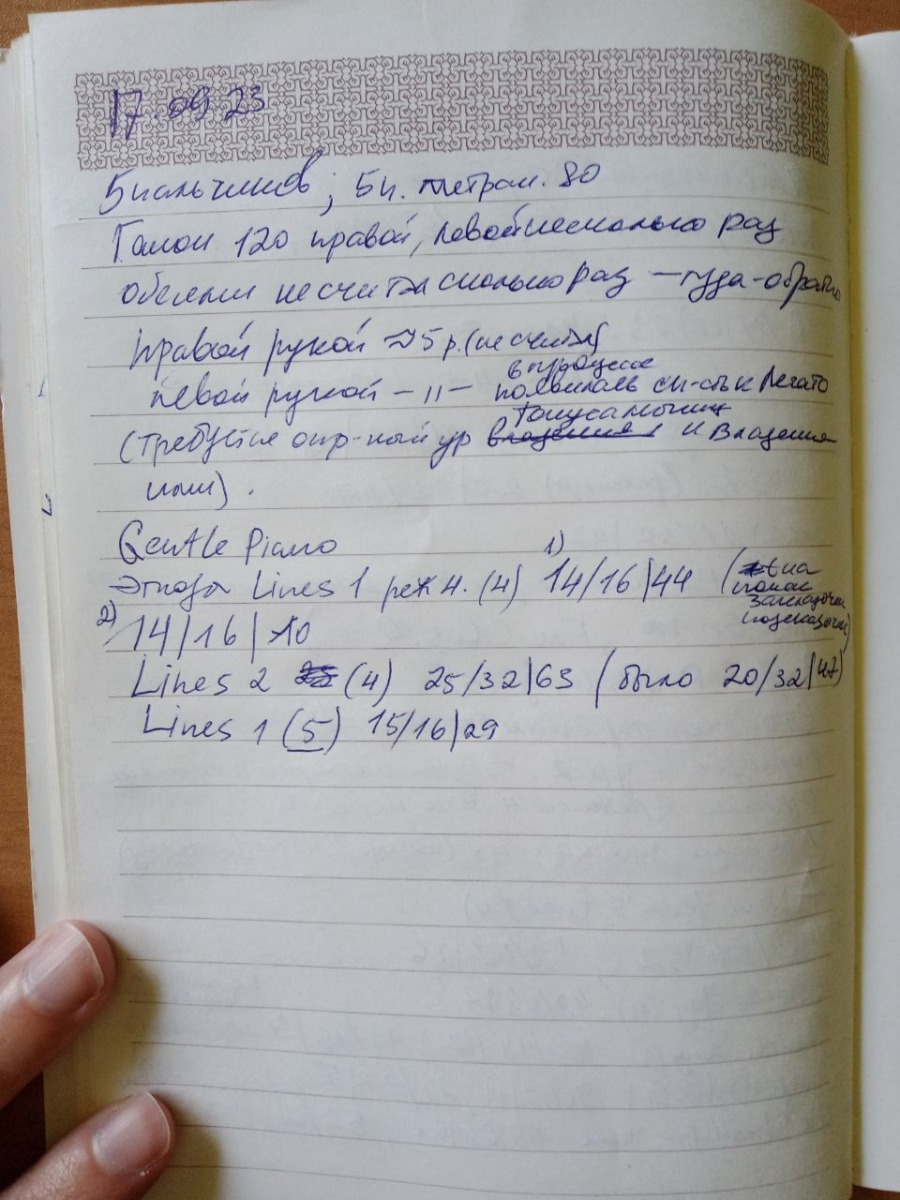 17.09 23
5 пальчиков; 5 п. тетрах. 80
Ганон 120 правой, левой несколько раз
обеими не считая сколько раз — туда-обратно
Правой рукой ≈5 р. (не считая)
левой рукой — 11 — в процессе появилась ск-сть к Легато
(Требуется опр-ный ур тонуса мышц и Владения
ими).
Gentle Piano
Этюды Lines 1 реж 4. (4) 1) 14/16|44 (на
2) 14/16|10
Lines 2 (4) 25/32|63 (было 20/32|47)
Lines 1 (5) 15/16|29